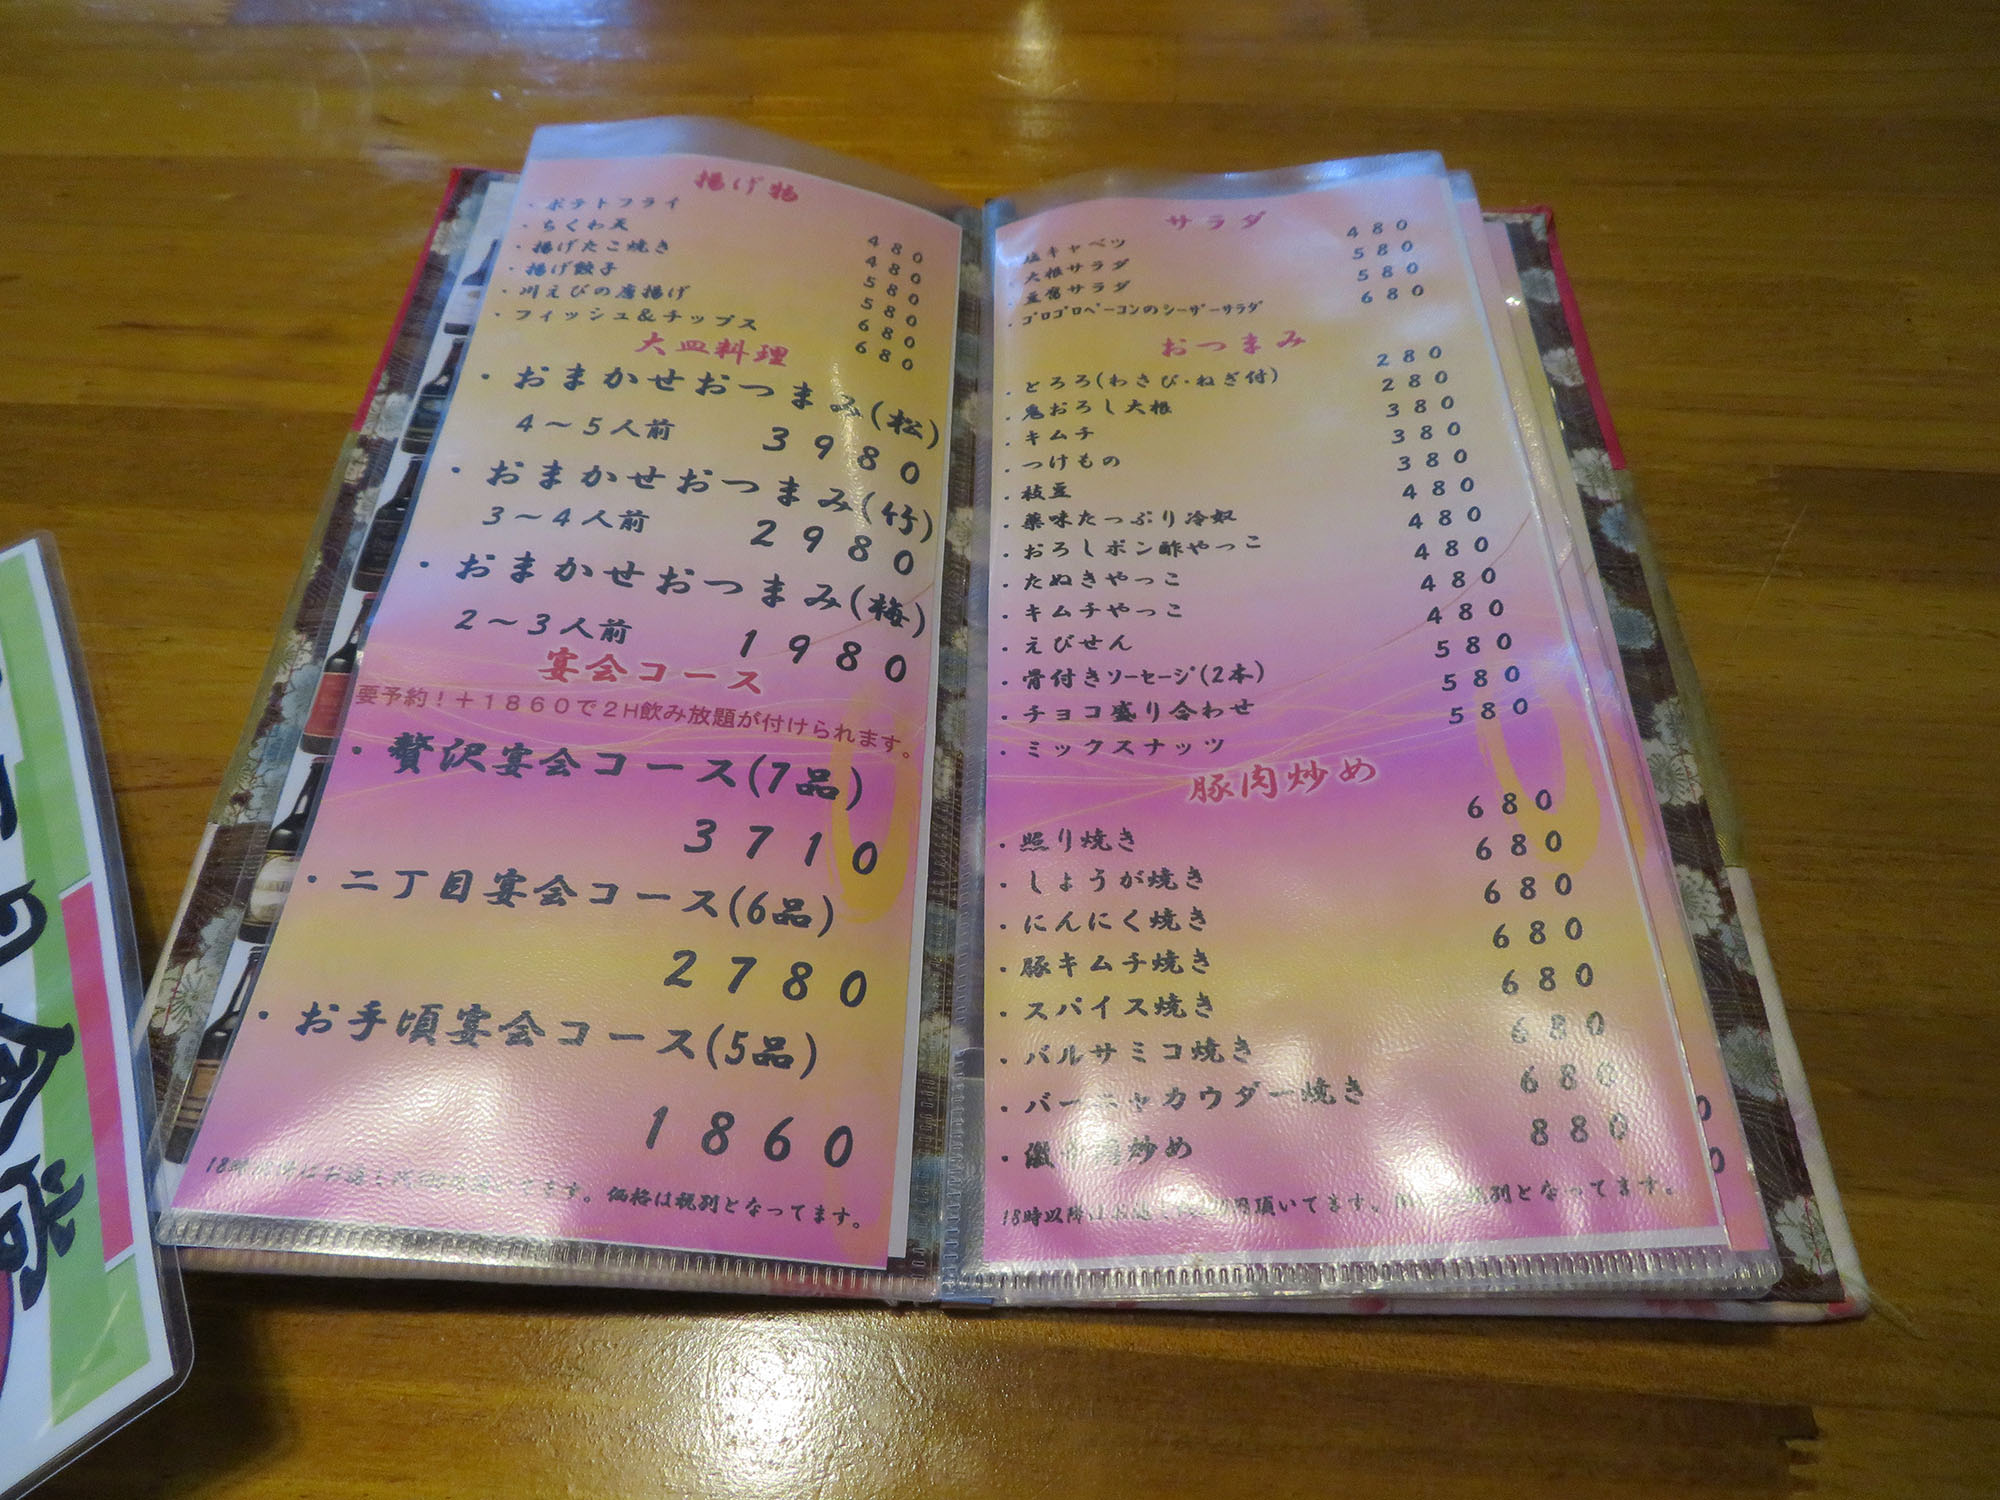 揚げ物
・ポテトフライ 480
・ちくわ天 480
・揚げたこ焼き 580
・揚げ餃子 580
・川えびの唐揚げ 680
・フィッシュ&チップス 680
大皿料理
・おまかせおつまみ(松)
4〜5人前 3980
・おまかせおつまみ(竹)
3〜4人前 2980
・おまかせおつまみ(梅)
2〜3人前 1980
宴会コース
要予約!+1860で2H飲み放題が付けられます。
・贅沢宴会コース(7品)
3710
・二丁目宴会コース(6品)
2780
・お手頃宴会コース(5品)
1860
18時以降はお通し
価格は税別となってます。
サラダ
塩キャベツ 480
・大根サラダ 580
・豆腐サラダ 580
・ゴロゴロベーコンのシーザーサラダ 680
おつまみ
・とろろ(わさび・ねぎ付) 280
・鬼おろし大根 280
・キムチ 380
・つけもの 380
・枝豆 380
・薬味たっぷり冷奴 480
・おろしポン酢やっこ 480
・たぬきやっこ 480
・キムチやっこ 480
・えびせん 480
・骨付きソーセージ(2本) 580
・チョコ盛り合わせ 580
・ミックスナッツ 580
豚肉炒め
・照り焼き 680
・しょうが焼き 680
・にんにく焼き 680
・豚キムチ焼き 680
・スパイス焼き 680
・バルサミコ焼き 680
・バーニャカウダー焼き 680
・炒め 880
18時以降はお通し
頂いてます。
税別となってます。